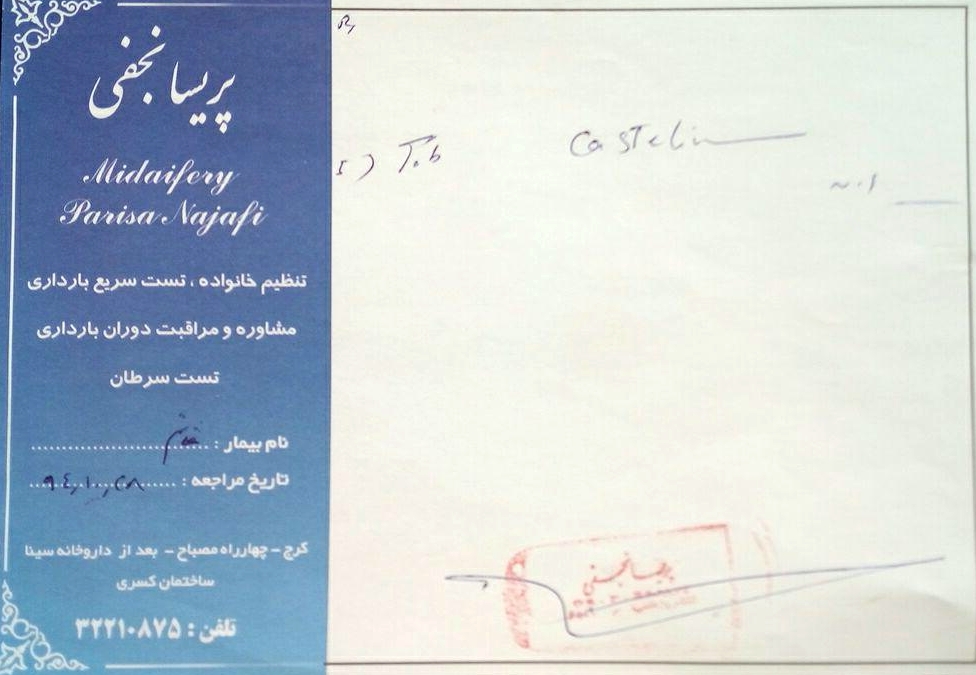 پریسا نجفی
Midaifery
Parisa Najafi
تنظیم خانواده ، تست سریع بارداری
مشاوره و مراقبت دوران بارداری
تست سرطان
نام بیمار : خانم
تاریخ مراجعه : ۹۴,۱۰,۲۸
کرج - چهارراه مصباح - بعد از داروخانه سینا
ساختمان کسری
تلفن : ۳۲۲۱۰۸۷۵
R,
I ) Tab Castelin
پریسا نجفی